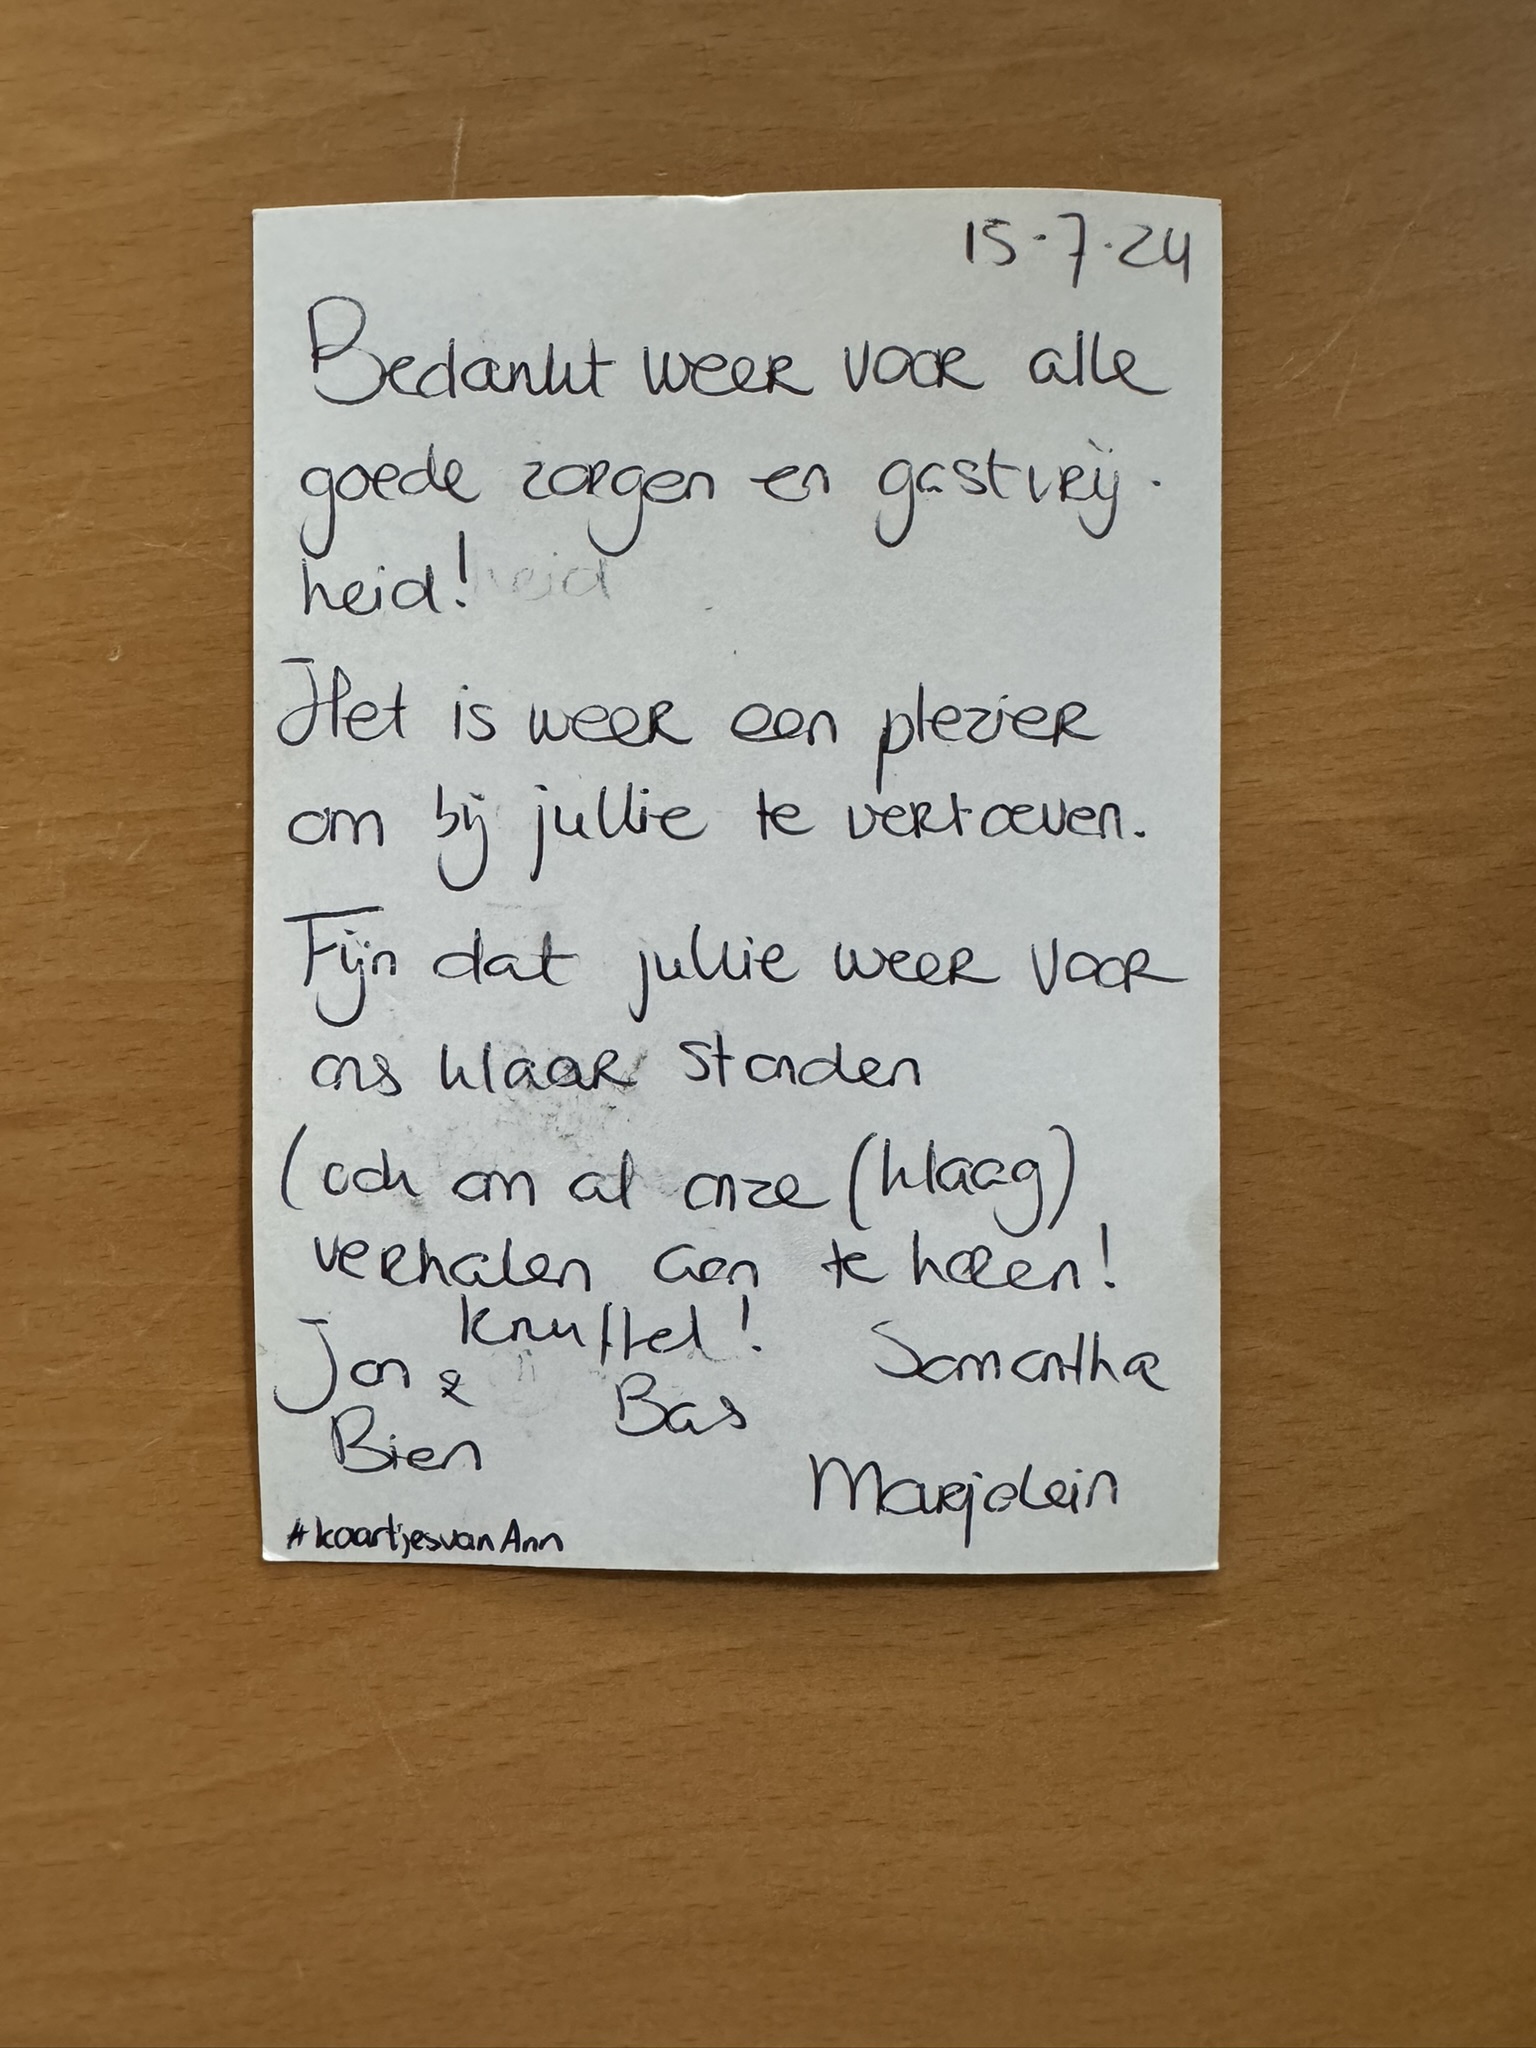 15-7-24
Bedankt weer voor alle
goede zorgen en gastvrij-
heid! heid
Het is weer een plezier
om bij jullie te vertoeven.
Fijn dat jullie weer voor
ons klaar stonden
(ook om al onze (klaag)
verhalen aan te horen!
Knuffel!
Jan & Bas Samantha
Bien Marjolein
#kaartjesvanAnn